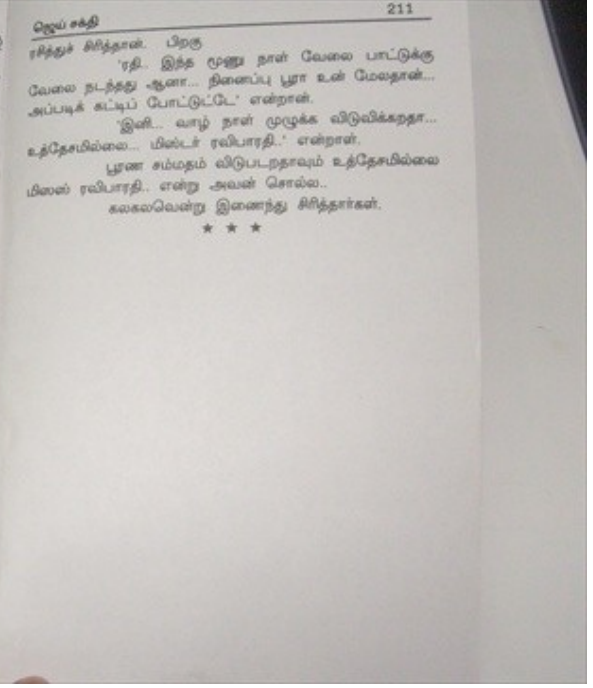 ஜெய் சக்தி 211
ரசித்துச் சிரித்தான். பிறகு
'ரதி.. இந்த மூணு நாள் வேலை பாட்டுக்கு
வேலை நடந்தது ஆனா... நினைப்பு பூரா உன் மேலதான்...
அப்படிக் கட்டிப் போட்டுட்டே' என்றான்.
'இனி... வாழ் நாள் முழுக்க விடுவிக்கறதா...
உத்தேசமில்லை... மிஸ்டர் ரவிபாரதி..' என்றாள்.
பூரண சம்மதம் விடுபடறதாவும் உத்தேசமில்லை
மிஸஸ் ரவிபாரதி.. என்று அவன் சொல்ல..
கலகலவென்று இணைந்து சிரித்தார்கள்.
★ ★ ★